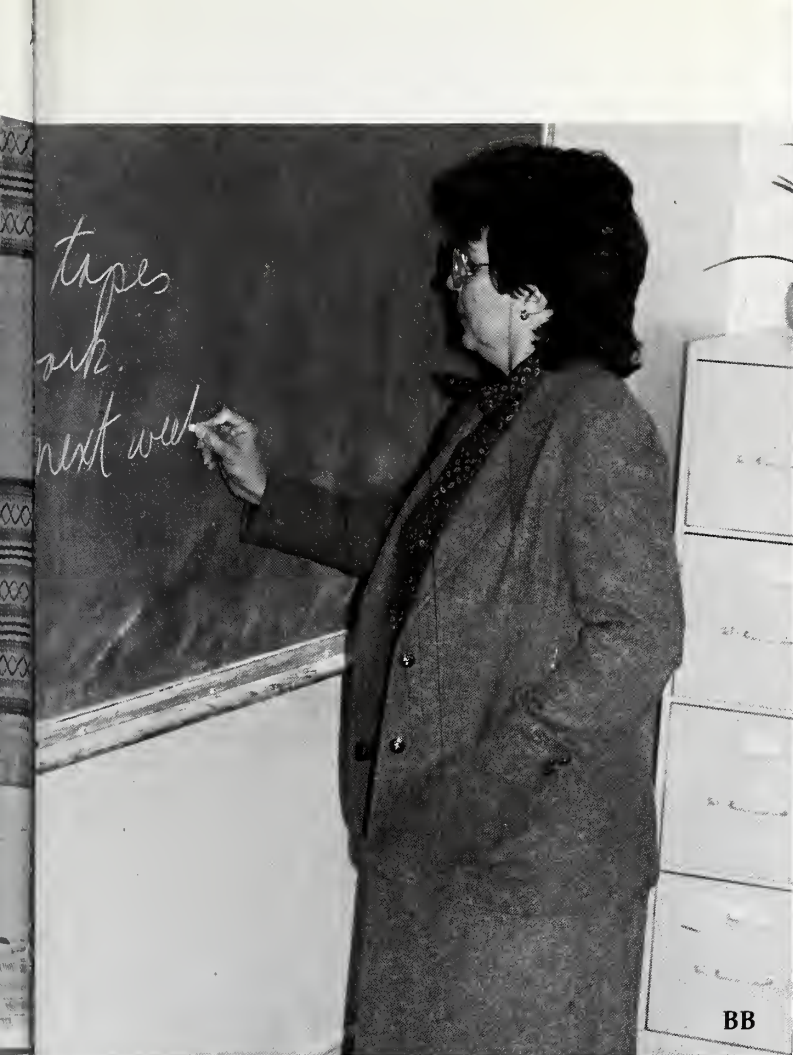 tapes
ork.
next week
BB